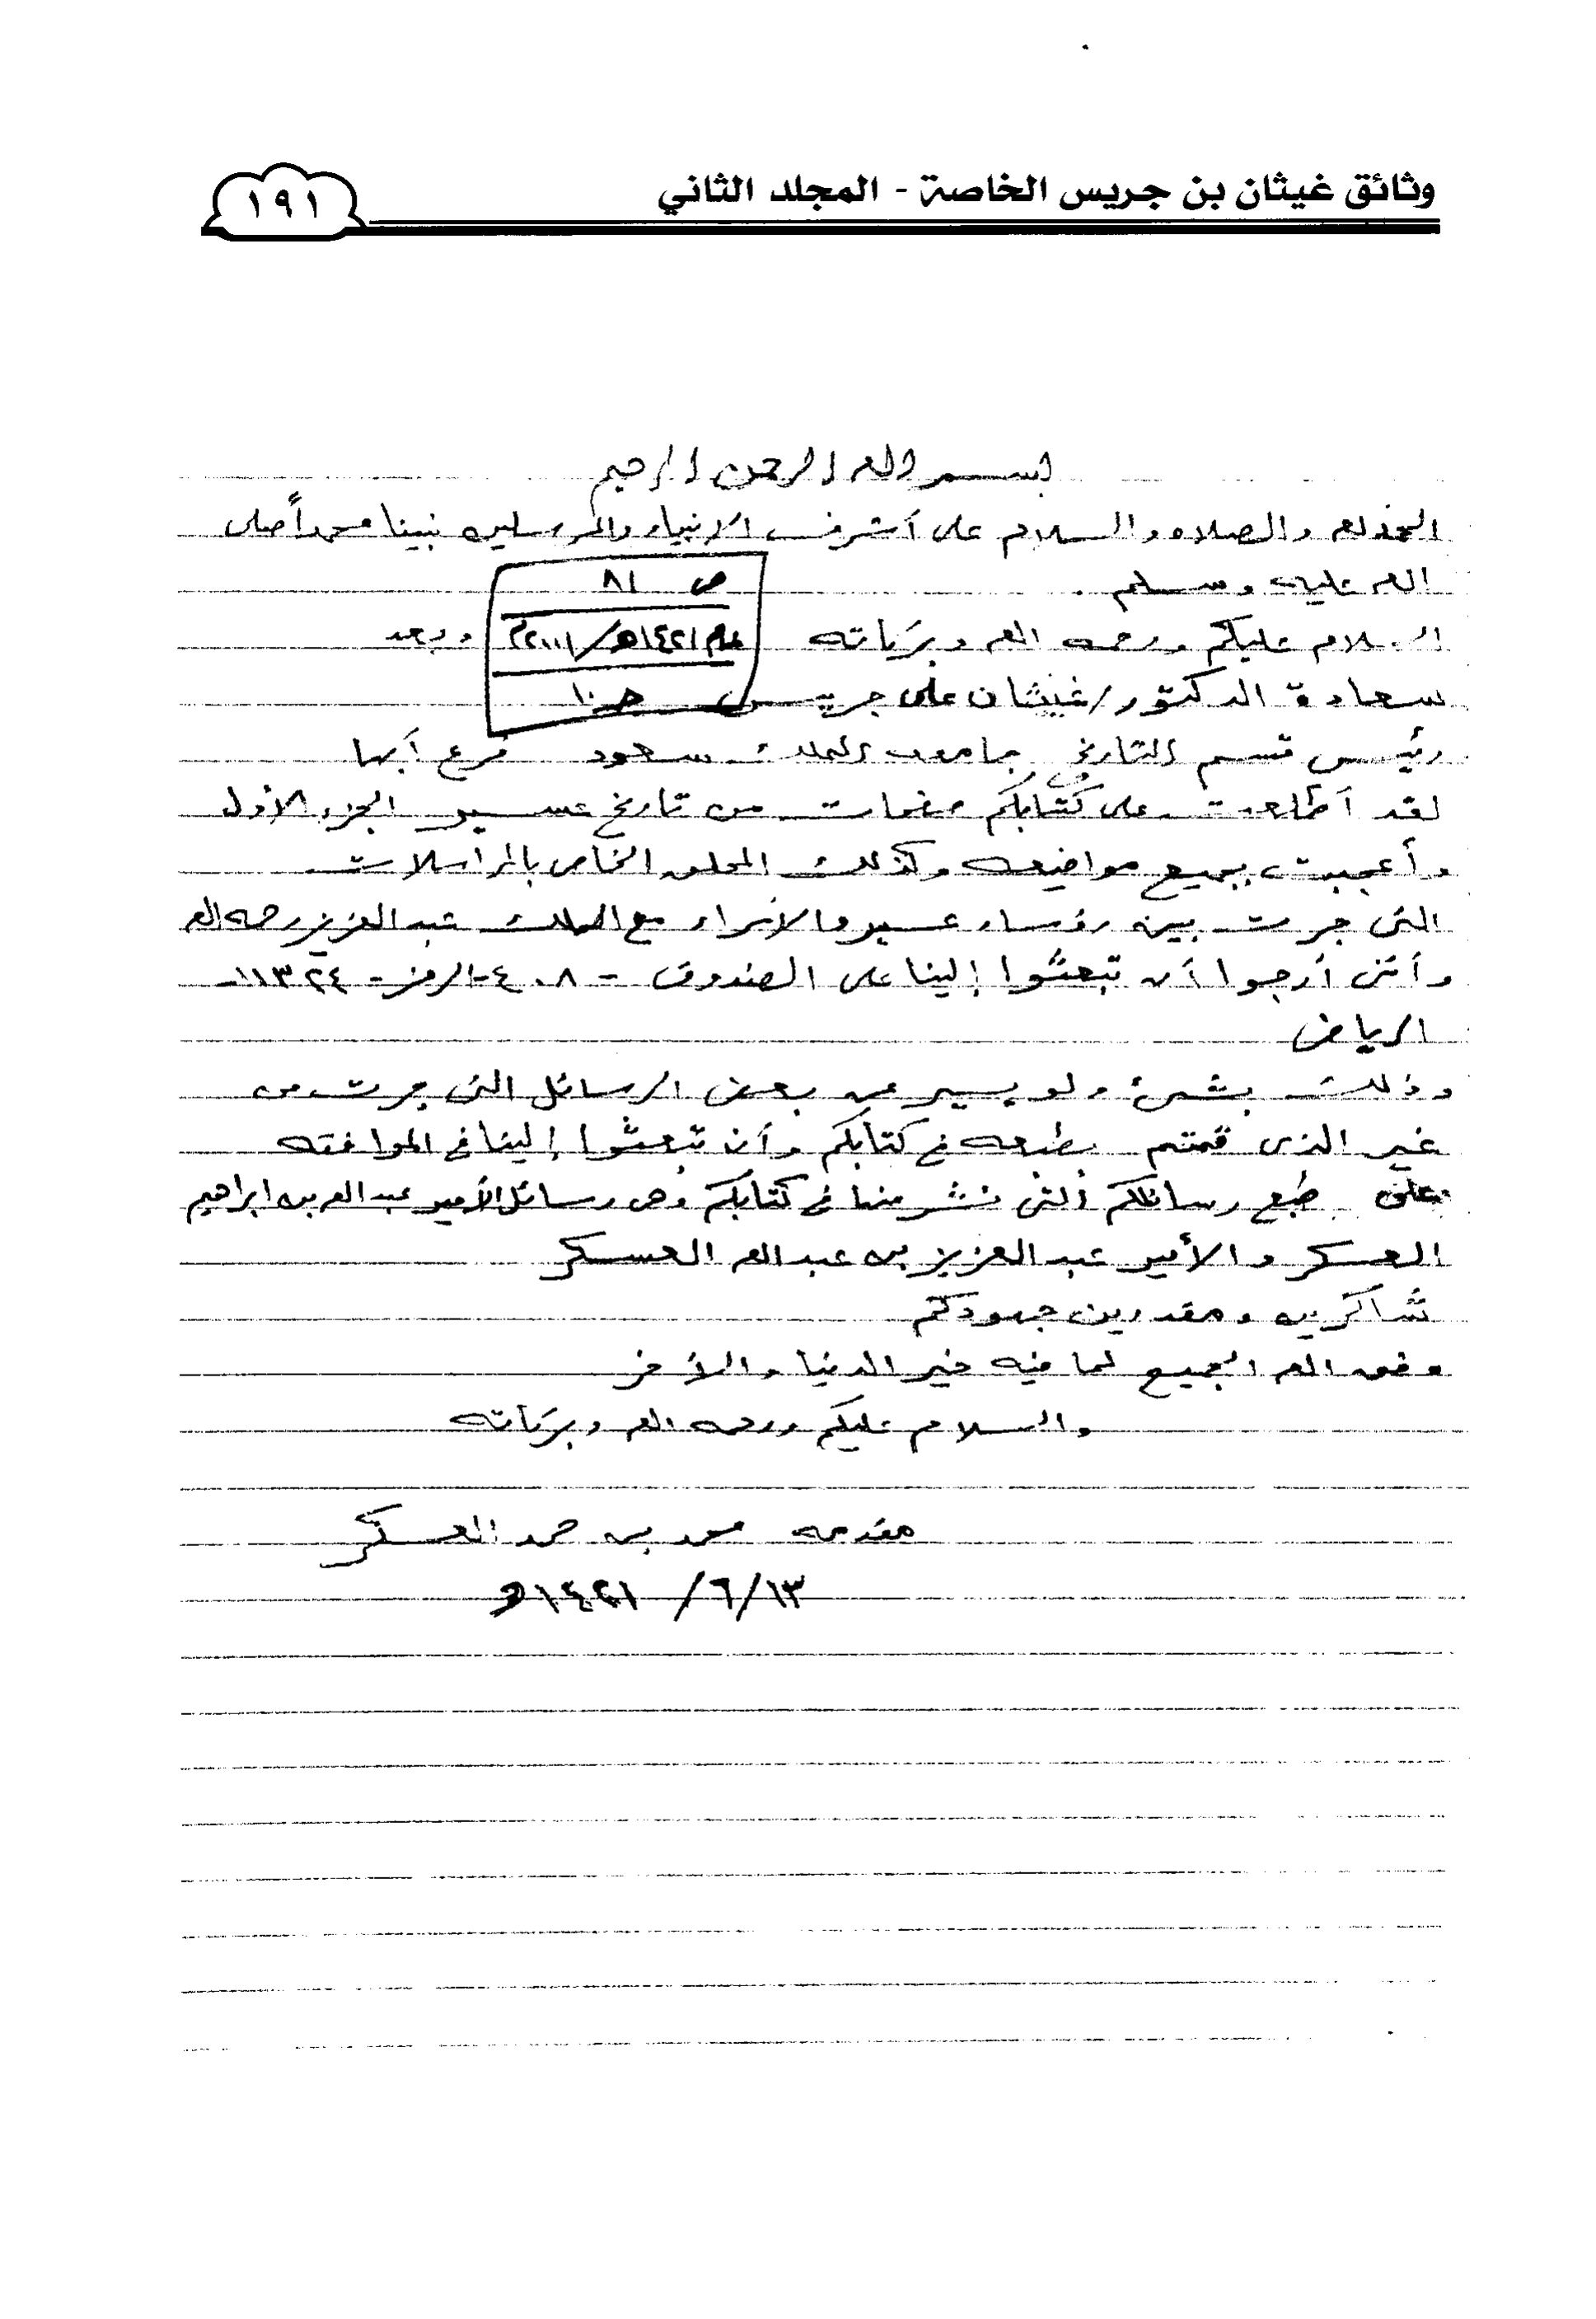 وثائق غيثان بن جريس الخاصة - المجلد الثاني
١٩١
بسم الله الرحمن الرحيم
الحمد لله والصلاه والسلام على أشرف الانبياء والمرسلين نبينا محمداً صلى
الله عليه وسلم .
ص ٨١
السلام عليكم ورحمه الله وبركاته
عام ١٤٢١هـ/٢٠٠١م
وبعد
سعادة الدكتور/غيثان على جريس
جـ١٠
رئيس قسم التاريخ جامعه الملك سعود فرع أبها
لقد أطلعت على كتابكم صفحات من تاريخ عسير الجزء الأول
وأعجبت بجميع مواضيعه وكذلك الملحق الخاص بالمراسلات
التى جرت بين رؤساء عسير والأمراء مع الملك عبد العزيز رحمه الله
وأننى أرجوا أن تبعثوا إلينا على الصندوق - ٤٠٨ - الرمز - ١١٣٢٤ -
الرياض
وذلك بشىء ولو يسير عن بعض الرسائل التى جرت من
غير الذى قمتم بطبعه فى كتابكم وأن تبعثوا إلينا فى الموافقه
على طبع رسائلكم التى نشر منها فى كتابكم وهى رسائل الأمير عبد الله بن ابراهيم
العسكر والأمير عبد العزيز بن عبد الله العسكر
شاكرين ومقدرين جهودكم
وفق الله الجميع لما فيه خير الدنيا والأخر
والسلام عليكم ورحمه الله وبركاته
مقدمه محمد بن حمد العسكر
١٣/٦/ ١٤٢١هـ